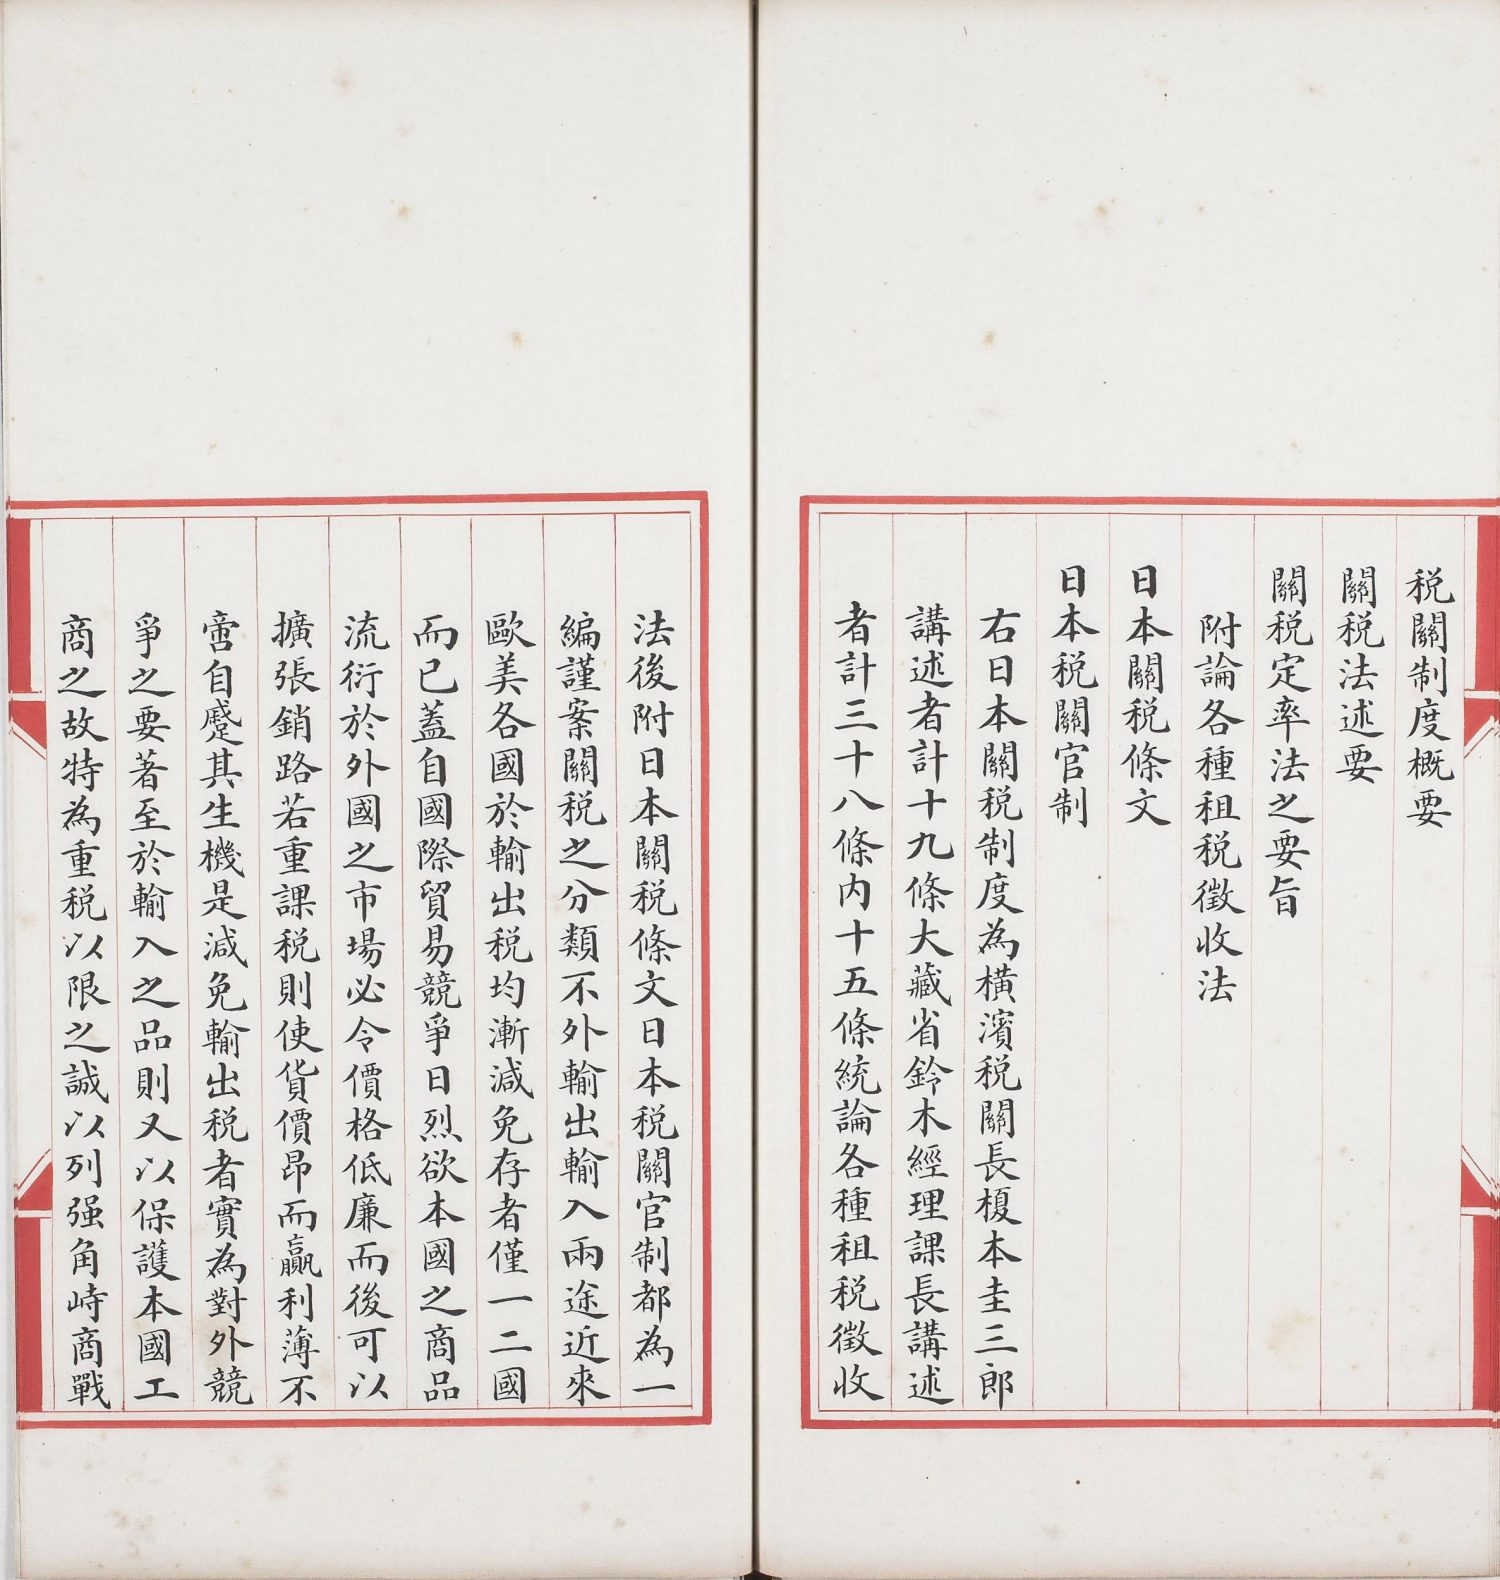 税關制度概要
關税法述要
關税定率法之要旨
附論各種租税徵收法
日本關税條文
日本税關官制
右日本關税制度為横濱税關長榎本圭三郎
講述者計十九條大藏省鈴木經理課長講述
者計三十八條内十五條統論各種租税徵收
法後附日本關税條文日本税關官制都為一
編謹案關税之分類不外輸出輸入兩途近來
歐美各國於輸出税均漸減免存者僅一二國
而已蓋自國際貿易競爭日烈欲本國之商品
流衍於外國之市場必令價格低廉而後可以
擴張銷路若重課税則使貨價昂而贏利薄不
啻自蹙其生機是減免輸出税者實為對外競
爭之要著至於輸入之品則又以保護本國工
商之故特為重税以限之誠以列强角峙商戰